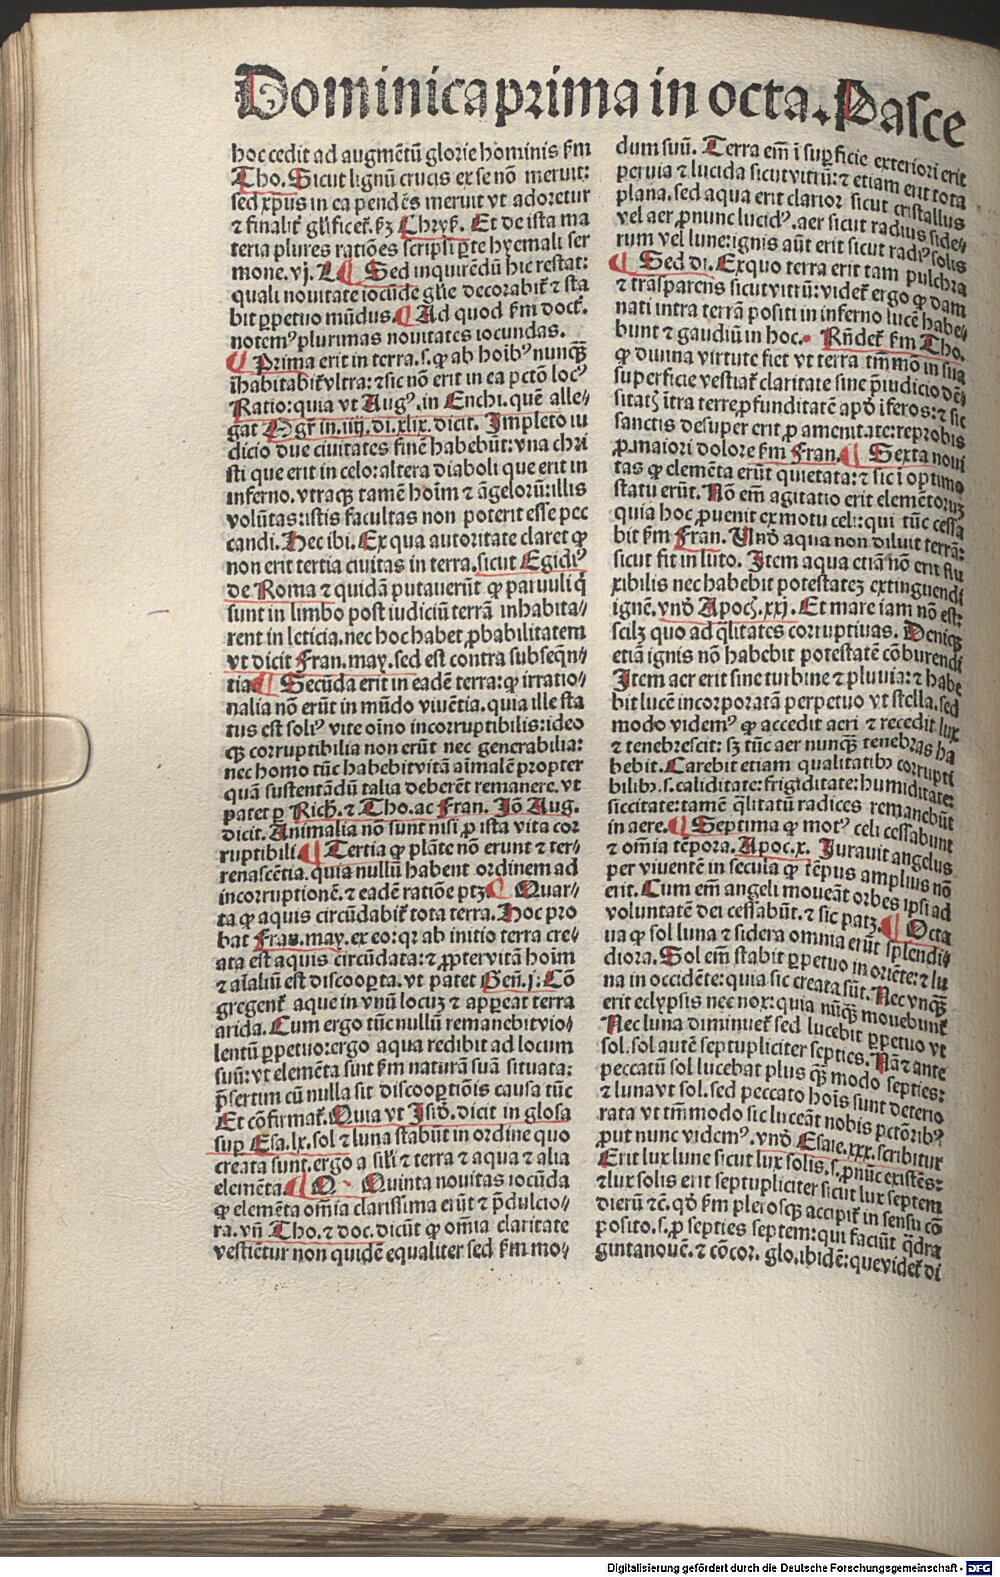 Dominica prima in octa. Pasce
hoc cedit ad augmētū glorie hominis ẜm
Tho. Sicut lignū crucis ex se nō meruit:
sed xp̄us in ea pendēs meruit vt adoretur
⁊ finalit᷑ gl̄ificet᷑. ẜꝫ Chryẜ. Et de ista ma
teria plures ratiōes scripsi ꝑte hyemali ser
mone. vj. L ¶ Sed inquirēdū hic restat:
quali nouitate iocūde gl̄ie decorabit᷑ ⁊ sta
bit ꝑpetuo mūdus. ¶ Ad quod ẜm doct᷑.
notemꝰ plurimas nouitates iocundas.
¶ Prima erit in terra. s. ꝙ ab hoībꝰ nunqꝫ̄
īhabitabit᷑ vltra: ⁊ sic nō erit in ea pctō locꝰ
Ratio: quia vt Augꝰ. in Enchi. quē alle⸗
gat Mgr̄ in. iiij. di. xlix. dicit. Impleto iu
dicio due ciuitates finē habebūt: vna chri
sti que erit in celo: altera diaboli que erit in
inferno. vtraqꝫ tamē hoīm ⁊ āgelorū: illis
volūtas: istis facultas non poterit esse pec
candi. Hec ibi. Ex qua autoritate claret ꝙ
non erit tertia ciuitas in terra. sicut Egidiꝰ
de Roma ⁊ quidā putauerūt ꝙ paruuli q̄
sunt in limbo post iudiciū terrā inhabita⸗
rent in leticia. nec hoc habet ꝓbabilitatem
vt dicit Fran. may. sed est contra subseqn̄⸗
tia ¶ Secūda erit in eadē terra: ꝙ irratio⸗
nalia nō erūt in mūdo viuētia. quia ille sta
tus est soliꝰ vite oīno incorruptibilis: ideo
qꝫ corruptibilia non erūt nec generabilia:
nec homo tūc habebit vitā aīmalē propter
quā sustentādū talia deberēt remanere. vt
patet ꝑ Rich. ⁊ Tho. ac Fran. Iō Aug.
dicit. Animalia nō sunt nisi ꝓ ista vita cor
ruptibili. ¶ Tertia ꝙ plāte nō erunt ⁊ ter⸗
renascētia. quia nullū habent ordinem ad
incorruptionē. ⁊ eadē ratiōe ptꝫ ¶ Quar⸗
ta ꝙ aquis circūdabit᷑ tota terra. Hoc pro
bat Fran. may. ex eo: qꝛ ab initio terra cre⸗
ata est aquis circūdata: ⁊ ꝓpter vitā hoīm
⁊ aīaliū est discooꝑta. vt patet Gen̄. j: Cō
gregent᷑ aque in vnū locuꝫ ⁊ appeat terra
arida. Cum ergo tūc nullū remanebit vio⸗
lentū ꝑpetuo: ergo aqua redibit ad locum
suū: vt elemēta sint ẜm naturā suā situata:
p̄sertim cū nulla sit discooꝑtiōis causa tūc
Et cōfirmat᷑. Quia vt Isid̄. dicit in glosa
suꝑ Esa. lx. sol ⁊ luna stabūt in ordine quo
creata sunt. ergo a sil̄i ⁊ terra ⁊ aqua ⁊ alia
elemēta. ¶ Quinta nouitas iocūda
ꝙ elemēta om̄ia clarissima erūt ⁊ p̄dulcio⸗
ra. vn̄ Tho. ⁊ doc. dicūt ꝙ om̄ia claritate
vestiētur non quidē equaliter sed ẜm mo⸗
dum suū. Terra em̄ ī suꝑficie exteriori erit
ꝑuia ⁊ lucida sicut vitrū: ⁊ etiam erit tota
plana. sed aqua erit clarior sicut cristallus
vel aer ꝓ nunc lucidꝰ. aer sicut radius side⸗
rum vel lune: ignis aūt erit sicut radiꝰ solis
¶ Sed di. Ex quo terra erit tam pulchra
⁊ trāsparens sicut vitrū: videt᷑ ergo ꝙ dam
nati intra terrā positi in inferno lucē habe⸗
bunt ⁊ gaudiū in hoc. Rn̄det᷑ ẜm Tho.
ꝙ diuina virtute fiet vt terra tm̄mō in sua
superficie vestiat᷑ claritate sine p̄iudicio dē⸗
sitatꝭ ītra terre ꝓfunditatē apd̄ īferos: ⁊ sic
sanctis desuper erit ꝓ amenitate: reprobis
ꝓ maiori dolore ẜm Fran. ¶ Sexta noui
tas ꝙ elemēta erūt quietata: ⁊ sic ī optimo
statu erūt. Nō em̄ agitatio erit elemētoruꝫ
quia hoc ꝓuenit ex motu celi: qui tūc cessa
bit ẜm Fran. Vnd̄ aqua non diluit terrā:
sicut fit in luto. Item aqua etiā nō erit flu
xibilis nec habebit potestateꝫ extinguendi
ignē. vnd̄ Apoc. xxj. Et mare iam nō est:
scilꝫ quo ad q̄litates corruptiuas. Deniqꝫ
etiā ignis nō habebit potestatē cōburendi
Item aer erit sine turbine ⁊ pluuia: ⁊ habe
bit lucē incorporatā perpetuo vt stella. sed
modo videmꝰ ꝙ accedit aeri ⁊ recedit lux
⁊ tenebrescit: sꝫ tūc aer nunqꝫ̄ tenebras ha
bebit. Carebit etiam qualitatibꝫ corrupti
bilibꝫ. s. caliditate: frigiditate: humiditate:
siccitate: tamē q̄litatū radices remanebūt
in aere. ¶ Septima ꝙ motꝰ celi cessabunt
⁊ om̄ia tēpora. Apoc. x. Iurauit angelus
per viuentē in secula ꝙ tēpus amplius nō
erit. Cum em̄ angeli moueāt orbes ipsi ad
voluntatē dei cessabūt. ⁊ sic patꝫ. ¶ Octa
ua ꝙ sol luna ⁊ sidera omnia erūt splendi⸗
diora. Sol em̄ stabit ꝑpetuo in oriēte: ⁊ lu
na in occidēte: quia sic creata sūt. Nec vnqꝫ̄
erit eclypsis nec nox: quia nūqꝫ̄ mouebunt᷑
Nec luna diminuet᷑ sed lucebit ꝑpetuo vt
sol. sol autē septupliciter septies. Nā ⁊ ante
peccatū sol lucebat plus qꝫ̄ modo septies:
⁊ luna vt sol. sed peccato hoīs sunt deterio
rata vt tm̄modo sic luceāt nobis pctōribꝰ
ꝓut nunc videmꝰ. vnd̄ Esaie. xxx. scribitur
Erit lux lune sicut lux solis. s. ꝓ nūc existēs:
⁊ lux solis erit septupliciter sicut lux septem
dierū ⁊c̄. qd̄ ẜm plerosqꝫ accipit᷑ in sensu cō
posito. s. ꝓ septies septem: qui faciūt q̄dra
gintanouē. ⁊ cōcor. glo. ibidē: que videt᷑ di
Digitalisierung gefördert durch die Deutsche Forschungsgemeinschaft - DFG